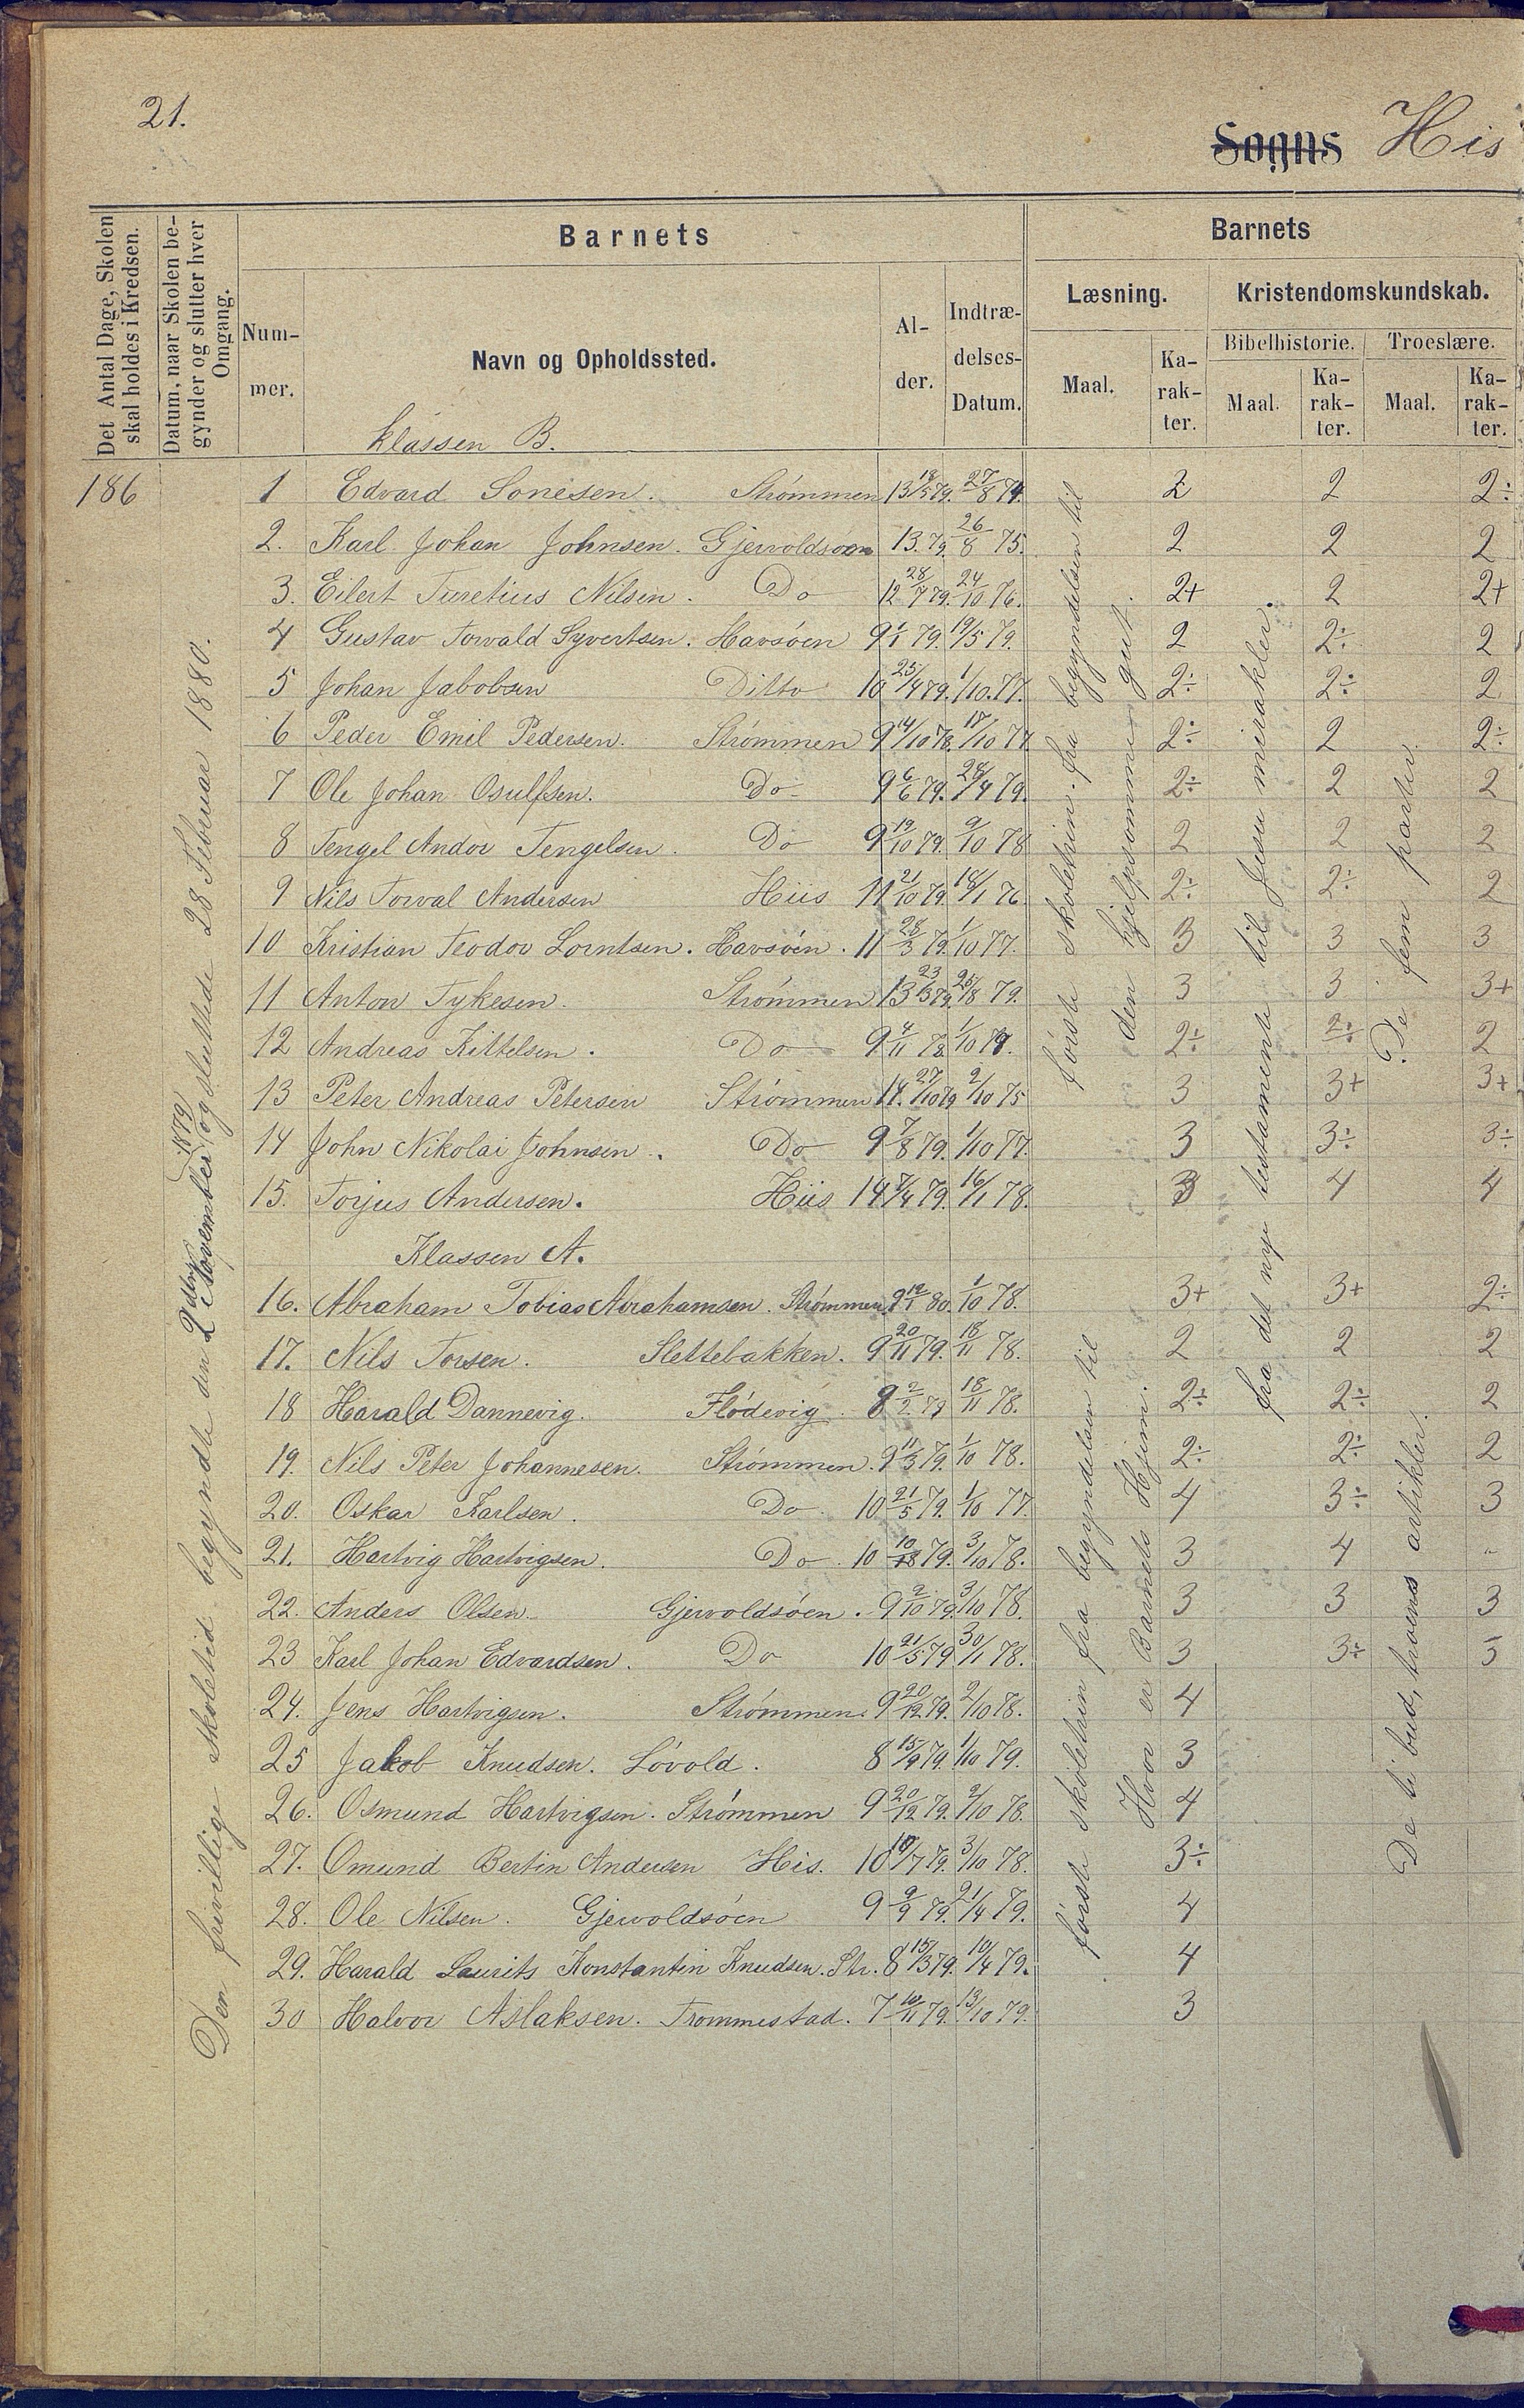 21.
Sogns His
Det Antal Dage, Skolen skal holdes i Kredsen.
Datum, naar Skolen begynder og slutter hver Omgang.
Barnets
Barnets
Nummer.
Navn og Opholdssted.
Alder.
Indtrædelses-Datum.
Læsning.
Kristendomskundskab.
Bibelhistorie.
Troeslære.
Maal.
Karakter.
Maal.
Karakter.
Maal.
Karakter.
klassen B.
186
1 Edvard Sonesen. Strømmen 13 18/5 79. 27/8 74. 2 2 2÷
2. Karl Johan Johnsen. Gjervoldsøen 13. 79. 26/8 75. 2 2 2
3. Eilert Turetius Nilsen. Do 12 28/7 79. 24/10 76. 2+ 2 2+
4 Gustav Torvald Syvertsen. Havsøen 9 1/1 79. 19/5 79. 2 2÷ 2
5 Johan Jabobsen Ditto 10 25/4 79. 1/10. 77. 2÷ 2÷ 2
6 Peder Emil Pedersen. Strømmen 9 14/10 78. 17/10 77 2÷ 2 2÷
7 Ole Johan Osulfsen. Do 9 6/6 79. 28/4 79. 2÷ 2 2
8 Tengel Andor Tengelsen. Do 9 19/10 79. 9/10 78 2 2 2
9 Nils Torval Andersen Hiis 11 21/10 79. 14/1 76 2÷ 2÷ 2
10 Kristian Teodor Lorntsen. Havsøen. 11 28/3 79. 1/10 77. 3 3 3
11 Anton Tykesen. Strømmen 13 23/3 79. 25/8 79. 3 3 3+
12 Andreas Kittelsen. Do 9 4/11 78 1/10 79. 2÷ 2÷ 2
13 Peter Andreas Petersen Strømmen 14. 27/10 79 2/10 75 3 3+ 3+
14 John Nikolai Johnsen. Do 9 7/8 79. 1/10 77. 3 3÷ 3÷
15. Torjus Andersen. Hiis 14 7/4 79. 16/1 78. 3 4 4
Klassen A.
16. Abraham Tobias Abrahamsen. Strømmen. 9 12/1 80. 1/10 78. 3+ 3+ 2÷
17. Nils Torsen. Slettebakken. 9 20/11 79. 18/11 78. 2 2 2
18 Harald Dannevig. Flødevig. 8 2/2 79 18/11 78. 2÷ 2÷ 2
19. Nils Peter Johannesen. Strømmen. 9 11/3 79. 1/10 78. 2÷ 2÷ 2
20. Oskar Karlsen. Do 10 21/5 79. 1/10 77. 4 3÷ 3
21. Hartvig Hartvigsen. Do 10 79. 3/10 78. 3 4
22. Anders Olsen. Gjervoldsøen. 9 2/10 79. 3/10 78. 3 3 3
23 Karl Johan Edvardsen. Do 10 21/5 79 30/1 78. 3 3÷ 5
24. Jens Hartvigsen. Strømmen. 9 20/12 79. 2/10 78. 4
25 Jakob Knudsen. Løvold. 8 15/9 79. 1/10 79. 3
26. Osmund Hartvigsen. Strømmen 9 20/12 79. 2/10 78. 4
27. Omund Bertin Andersen His. 10 10/7 79. 3/10 78. 3÷
28. Ole Nilsen. Gjervoldsøen 9 9/9 79. 21/4 79. 4
29. Harald Laurits Konstantin Knudsen. Str. 8 15/3 79. 10/4 79. 4
30 Halvor Aslaksen. Trommestad. 7 10/11 79. 13/10 79. 3
Den frivillige skoletid begyndte den 2den November 1879 og sluttede 28 Februar 1880.
første skoletrin. fra begyndelsen til
den hjelpsomme gut.
første skoletrin fra begyndelsen til
Hvor er Barnets Hjem.
fra det nye testamente til Jesu mirakler.
De fem parter.
De ti bud, troens artikler.